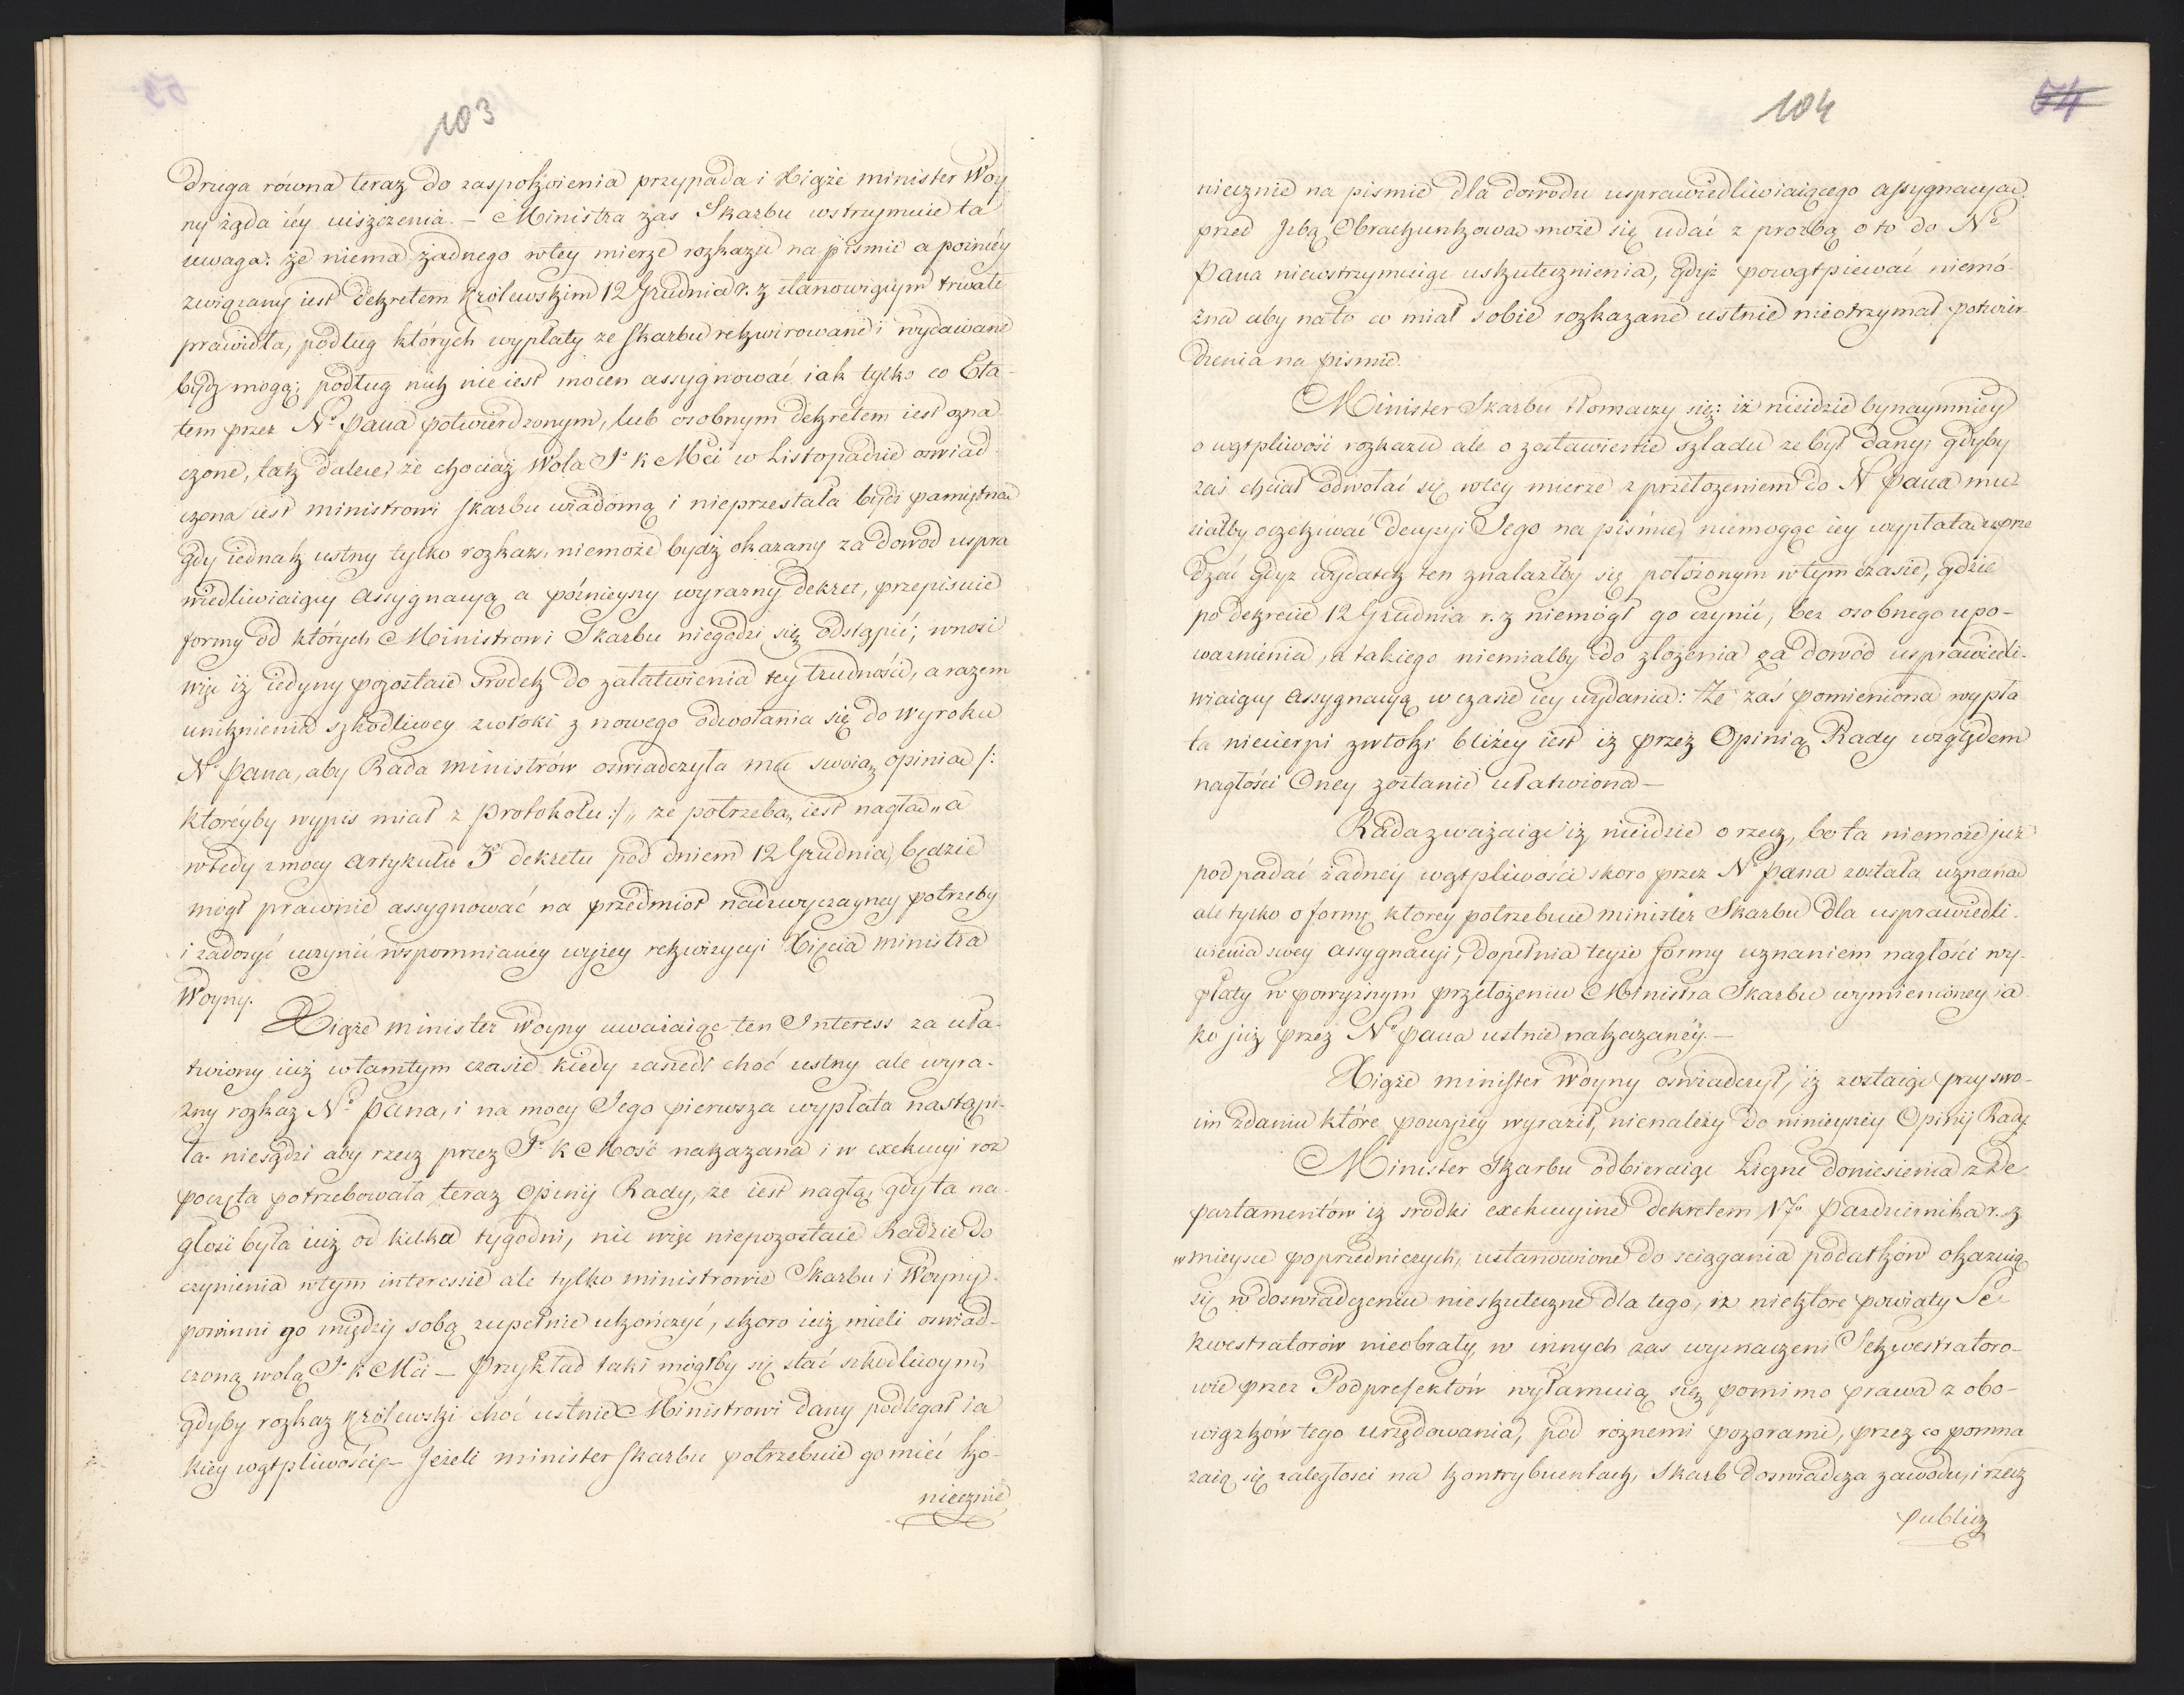 103
druga równa teraz do zaspokoienia przypada i Xiąże minister Woy
ny żąda iéy uiszczenia. – Ministra zas Skarbu wstrzymuie ta
uwaga: że niema żadnego wtey mierze rozkazu na pismie a poźniéy
związany iest dekretem Królewskim 12 Grudnia r. z stanowiącym trwałe
prawidła, podług których wypłaty ze skarbu rekwirowane i wydawane
bydz mogą; podług nich nie iest mocen assygnować iak tylko co Eta-
tem przez No Pana potwierdzonym, lub osobnym dekretem iest ozna-
czone, tak dalece, że chociaż Wola J. K Mci w Listopadzie oswiad-
czona iest ministrowi skarbu wiadomą i nieprzestała bydź pamiętna
gdy iednak ustny tylko rozkaz, niemoże bydź okazany za dowod uspra
wiedliwiaiący assygnacyą a późnieyszy wyrazny dekret, przepisuie
formy od których Ministrowi Skarbu niegodzi się odstąpić; wnosi
więc iż iedyny pozostaie srodek do załatwienia tey trudności, a razem
uniknienia szkodliwey zwłoki z nowego odwołania się do wyroku
No Pana, aby Rada ministrów oswiadczyła mu swoią opinia /:
któréyby wypis miał z protokołu :/ „ że potrzeba „ iest nagła „ a
wtedy zmocy artykułu 3o dekretu pod dniem 12 Grudnia, będzie
mógł prawnie assygnować na przedmiot nadzwyczayney potrzeby
i zadosyć uczynić wspomnianéy wyżey rekwizycyi Xięcia ministra
Woyny.
Xiąże minister Woyny uważaiąc ten Interess za uła-
twiony iuż wtamtym czasie kiedy zaszedł choć ustny ale wyra-
zny rozkaz No Pana, i na mocy Jego pierwsza wypłata nastąpi-
ła. niesądzi aby rzecz przez J. K Mość nakazana i w exekucyi roz
poczęta potrzebowała teraz opinij Rady, że iest nagłą, gdy ta na-
głosć była iuż od kilku tygodni, nic więc niepozostaie Radzie do
czynienia wtym interessie ale tylko ministrowie Skarbu i Woyny
powinni go między sobą zupełnie ukończyć, skoro iuż mieli oswiad-
czoną wolą J. K Mci – Przykład taki mógłby się stać szkodliwym,
gdyby rozkaz Królewski choć ustnie Ministrowi dany podlegał ia
kiey wątpliwości, – Jeżeli minister skarbu potrzebuie go mieć ko-
niecznie
104
54
niecznie na pismie dla dowodu usprawiedliwiaiącego assygnacya
przed Jzbą Obrachunkową może się udać z prozbą o to do No
Pana niewstrzymuiąc uskutecznienia, gdyż powątpiewać niemo-
żna aby nato co miał sobie rozkazane ustnie nieotrzymał potwier
dzenia na pismie.
Minister Skarbu tłomaczy się: iż nieidzie bynaymniey
o wątpliwość rozkazu ale o zostawienie szladu że był dany; gdyby
zaś chciał odwołać się wtey mierze z przełożeniem do N Pana mu-
siałby oczekiwać decyzyi Jego na piśmie, niemogąc iey wypłatą uprze
dzać gdyz wydatek ten znalazłby się położonym wtym czasie, gdzie
po dekrecie 12 Grudnia r. z niemógł go czynić, bez osobnego upo-
ważnienia, a takiego niemiałby do złożenia za dowod usprawiedli-
wiaiący assygnacyą w czasie iey wydania: Że zaś pomieniona wypła
ta niecierpi zwłoki bliżey iest iż przez Opinią Rady względem
nagłości Oney zostanie ułatwiona –
Rada zważaiąc iż nieidzie o rzecz, bo ta niemoże już
podpadać żadnéy wątpliwości skoro przez No Pana została uznana
ale tylko o formę ktorey potrzebuie minister Skarbu dla usprawiedli-
wienia swey assygnacyi, dopełnia teyże formy uznaniem nagłości wy-
płaty w powyższym przełożeniu Ministra Skarbu wymienioney ia-
ko już przez No Pana ustnie nakazanéy. –
Xiąże minister Woyny oswiadczył, iż zostaiąc przy swo-
im zdaniu które powyżey wyraził, nienależy do ninieyszey Opinij Rady.
Minister Skarbu odbieraiąc Liczne doniesienia z De
partamentów iż srodki exekucyine dekretem 17o Pazdziernika r. z
w mieysce poprzedniczych, ustanowione do sciągania podatków okazuią
się w doswiadczeniu nieskuteczne dla tego, iż niektóre powiaty Se
kwestratorów nieobrały, w innych zas wyznaczeni Sekwestratoro-
wie przez Podprefektów wyłamuią się, pomimo prawa z obo-
wiązków tego urzędowania, pod rożnemi pozorami, przez co pomna
żaią się zaległosci na kontrybuentach, Skarb doswiadcza zawodu, i rzecz
publicz